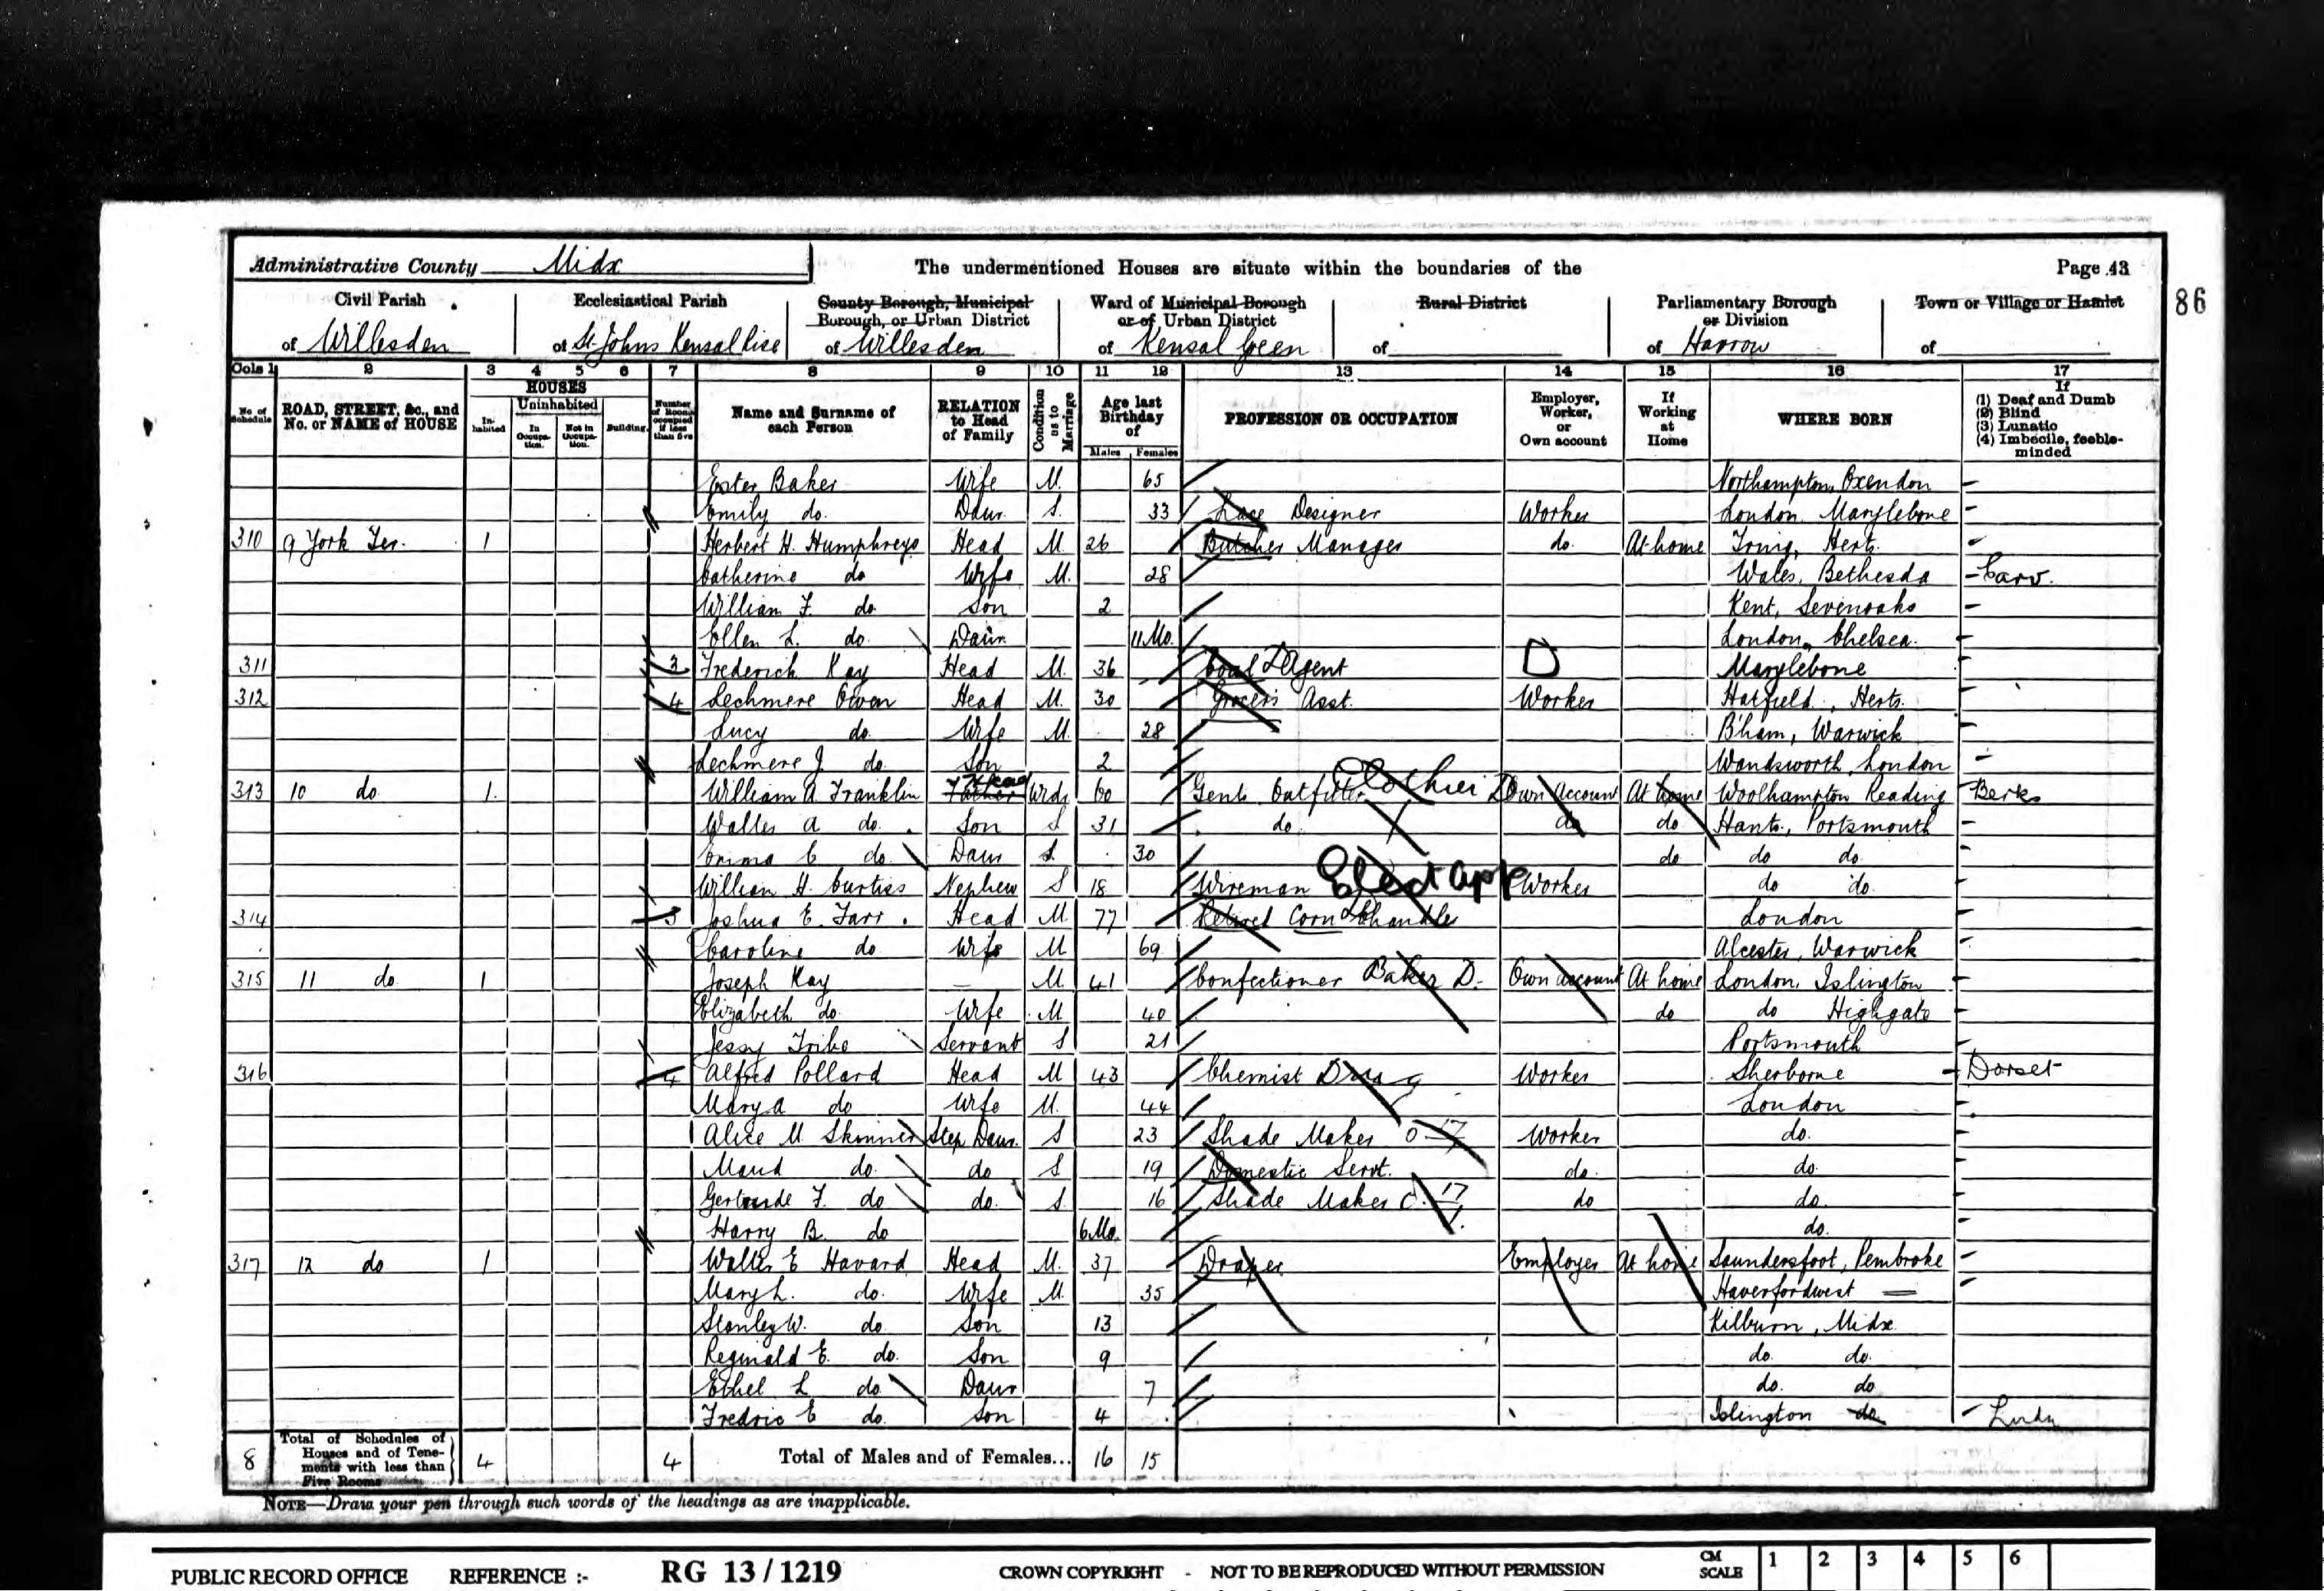 Administrative County Midx The undermentioned Houses are situate within the boundaries of the Page 43
86
Civil Parish of Willesden
Ecclesiastical Parish of St. Johns Kensal Rise
County Borough, Municipal Borough, or Urban District of Willesden
Ward of Municipal Borough or of Urban District of Kensal Green
Rural District of
Parliamentary Borough or Division of Harrow
Town or Village or Hamlet of
Cols 1 2 3 4 5 6 7 8 9 10 11 12 13 14 15 16 17
No. of Schedule
ROAD, STREET, &c., and No. or NAME of HOUSE
HOUSES
Inhabited
Uninhabited
In Occupation.
Not in Occupation.
Building.
Number of Rooms occupied if less than five
Name and Surname of each Person
RELATION to Head of Family
Condition as to Marriage
Age last Birthday of
Males Females
PROFESSION OR OCCUPATION
Employer, Worker, or Own account
If Working at Home
WHERE BORN
If
(1) Deaf and Dumb
(2) Blind
(3) Lunatic
(4) Imbecile, feeble-minded
Ester Baker Wife M. 65 Northampton, Oxendon
Emily do. Daur. S. 33 Lace Designer Worker London Marylebone
310 9 York Ter. 1 Herbert H. Humphreys Head M. 26 Butcher Manager do. At home Tring, Herts.
Catherine do Wife M. 28 Wales, Bethesda Carv.
William F. do Son 2 Kent, Sevenoaks
Ellen L. do. Daur. 11 Mo. London, Chelsea.
311 3 Frederick Kay Head M. 36 Coal Agent Marylebone
312 4 Lechmere Owen Head M. 30 Grocers Asst. Worker Hatfield, Herts.
Lucy do. Wife M. 28 B'ham, Warwick
Lechmere J. do. Son 2 Wandsworth, London
313 10 do. 1. William A. Franklin Father Head Wrdr 60 Gents Outfitter Clothier D Own Account At home Woolhampton Reading Berks
Walter A do. Son S 31 do. do do Hants., Portsmouth
Emma C do. Daur S. 30 do do do.
William H. Curtiss Nephew S 18 Wireman Elect app Worker do do.
314 3 Joshua E. Farr. Head M 77 Retired Corn Chandler London
Caroline do Wife M 69 Alcester, Warwick
315 11 do. 1 Joseph Kay — M 41 Confectioner Baker D. Own account At home London, Islington
Elizabeth do. Wife M 40 do do Highgate
Jessy Tribe Servant S 21 Portsmouth
316 4 Alfred Pollard Head M 43 Chemist Drug Worker Sherborne Dorset
Mary A do Wife M. 44 London
Alice M Skinner Step Daur. S 23 Shade Maker 0 17 Worker do.
Maud do. do S 19 Domestic Servt. do. do.
Gertrude F. do do. S. 16 Shade Maker 17 do do.
Harry B. do 6 Mo. do.
317 12 do 1 Walter E Havard Head M. 37 Draper Employer At home Saundersfoot, Pembroke
Mary L. do. Wife M. 35 Haverfordwest —
Stanley W. do Son 13 Kilburn, Midx.
Reginald E. do. Son 9 do. do.
Ethel L do Daur 7 do. do
Fredric E do. Son 4 Islington do
8 Total of Schedules of Houses and of Tenements with less than Five Rooms 4 4 Total of Males and of Females... 16 15
NOTE—Draw your pen through such words of the headings as are inapplicable.
PUBLIC RECORD OFFICE REFERENCE :- RG 13 / 1219 CROWN COPYRIGHT - NOT TO BE REPRODUCED WITHOUT PERMISSION CM SCALE 1 2 3 4 5 6